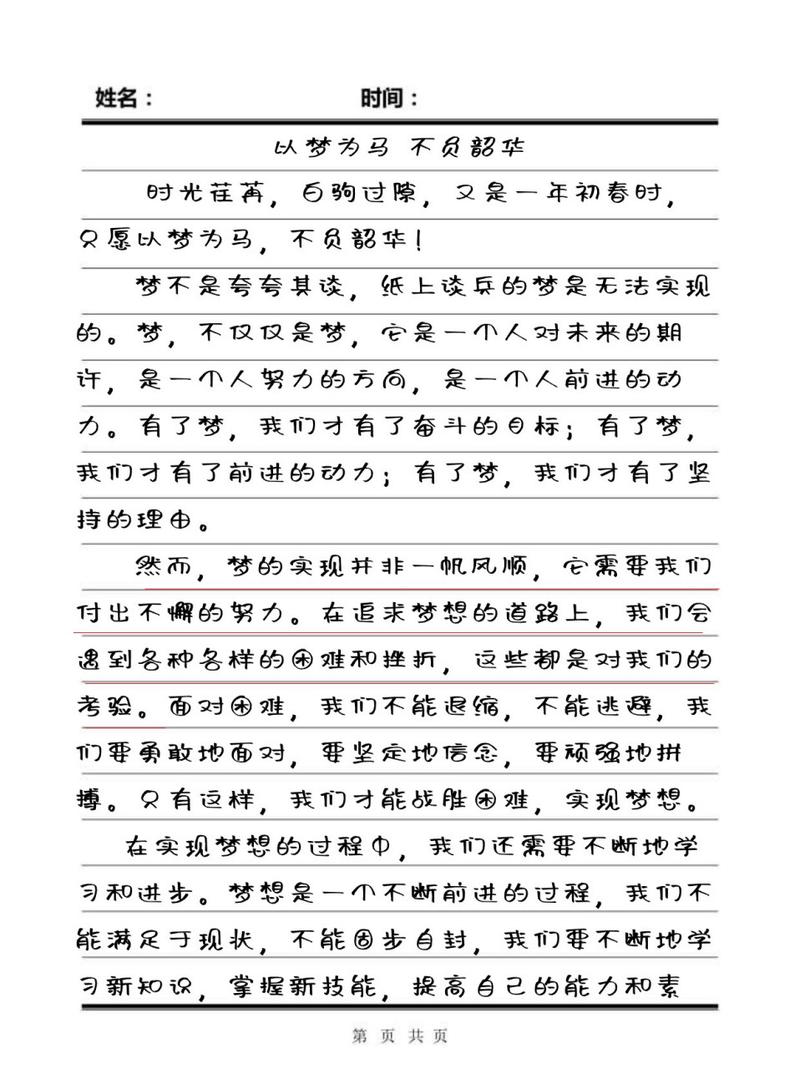 姓名： 时间：
以梦为马 不负韶华
时光荏苒，白驹过隙，又是一年初春时，
只愿以梦为马，不负韶华！
梦不是夸夸其谈，纸上谈兵的梦是无法实现
的。梦，不仅仅是梦，它是一个人对未来的期
许，是一个人努力的方向，是一个人前进的动
力。有了梦，我们才有了奋斗的目标；有了梦，
我们才有了前进的动力；有了梦，我们才有了坚
持的理由。
然而，梦的实现并非一帆风顺，它需要我们
付出不懈的努力。在追求梦想的道路上，我们会
遇到各种各样的困难和挫折，这些都是对我们的
考验。面对困难，我们不能退缩，不能逃避，我
们要勇敢地面对，要坚定地信念，要顽强地拼
搏。只有这样，我们才能战胜困难，实现梦想。
在实现梦想的过程中，我们还需要不断地学
习和进步。梦想是一个不断前进的过程，我们不
能满足于现状，不能固步自封，我们要不断地学
习新知识，掌握新技能，提高自己的能力和素
第 页 共 页